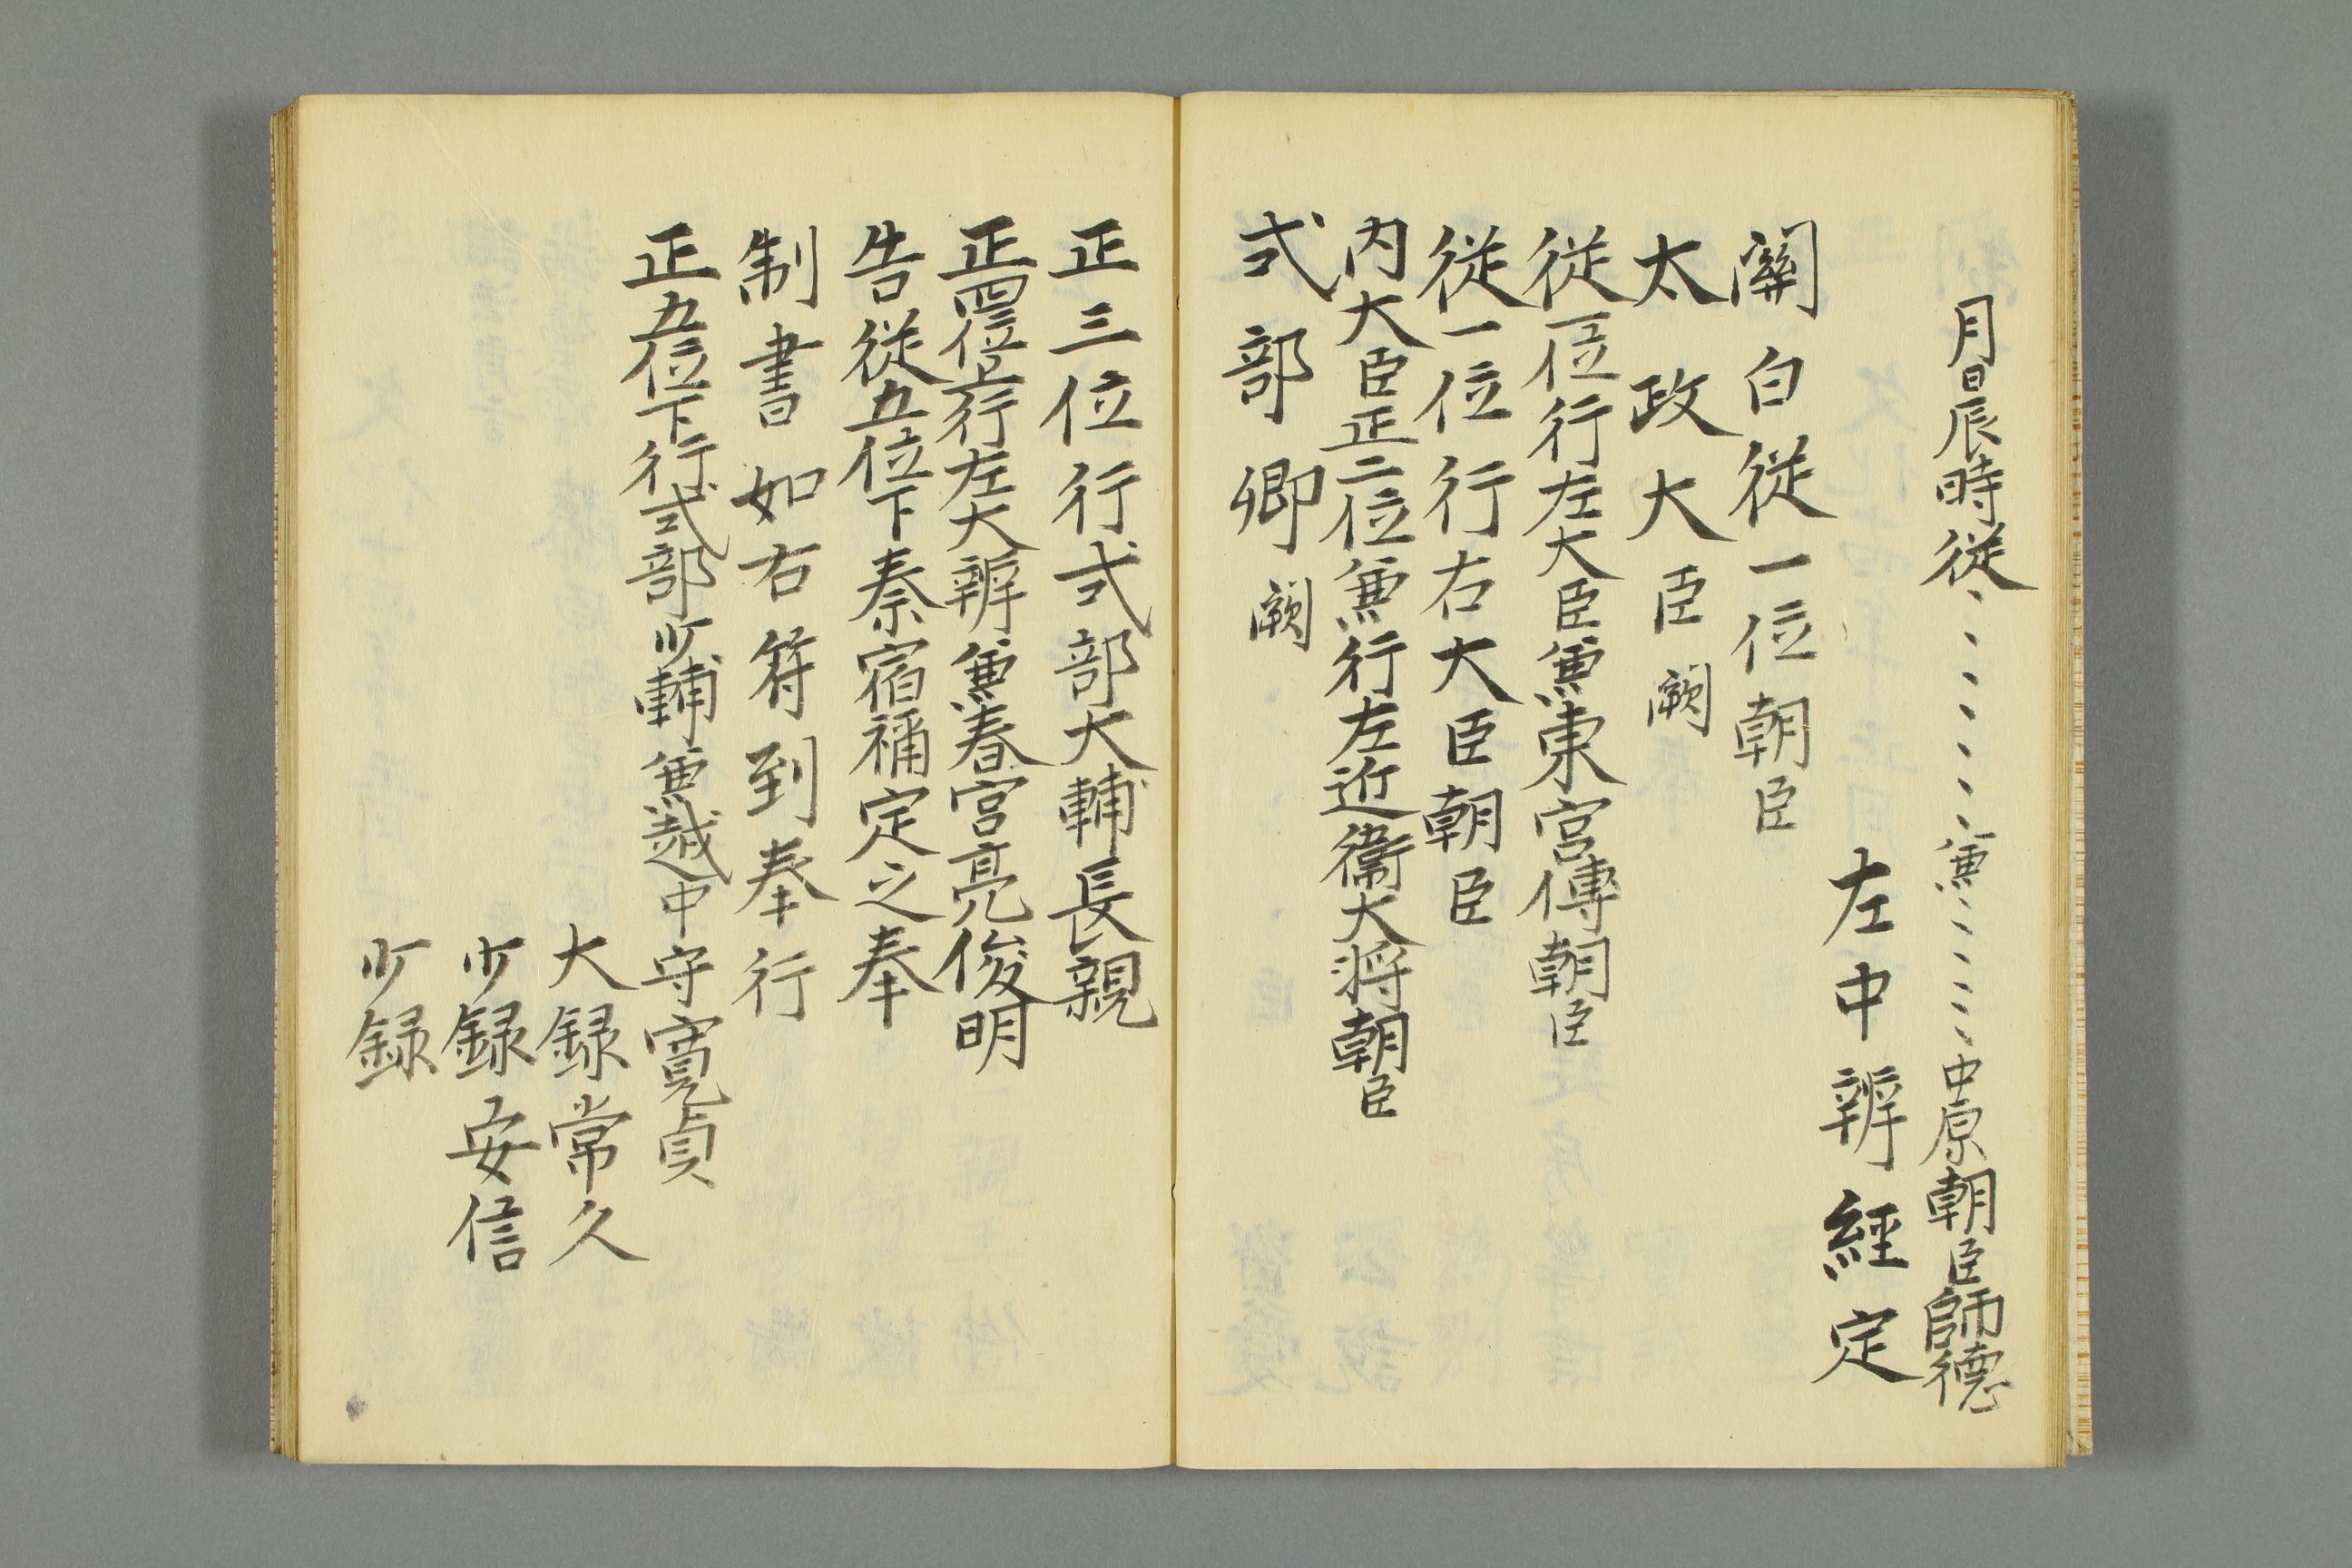 月日辰時従、、、、、、、兼、、、、、、中原朝臣師德
左中辨經定
關白従一位朝臣
太政大臣闕
従一位行左大臣兼東宮傳朝臣
従一位行右大臣朝臣
内大臣正二位兼行左近衞大将朝臣
式部卿闕
正三位行式部大輔長親
正四位上行左大辨兼春宮亮俊明
告従五位下秦宿祢定之奉
制書如右符到奉行
正五位下行式部少輔兼越中守寛貞
大録常久
少録安信
少録